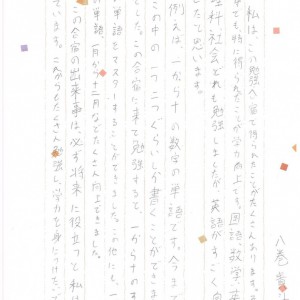 八巻
私は、この勉強合宿で得られたことがたくさんあります。
中でも、特に得られたことが学力向上です。国語、数学、
理科、社会どれも勉強しましたが、英語がすごく向
上したと思います。
例えば、一から十の数字の単語です。今ま
この中の二つぐらいしか書くことができま
でした。この合宿に来て勉強すると、一から十のす
単語をマスターすることができました。この他にも、一
の単語、一月から十二月などたくさん向上できました。
の合宿の出来事は、必ず将来に役立つと私は
ています。これからもたくさん勉強し、学力を身につけたいで